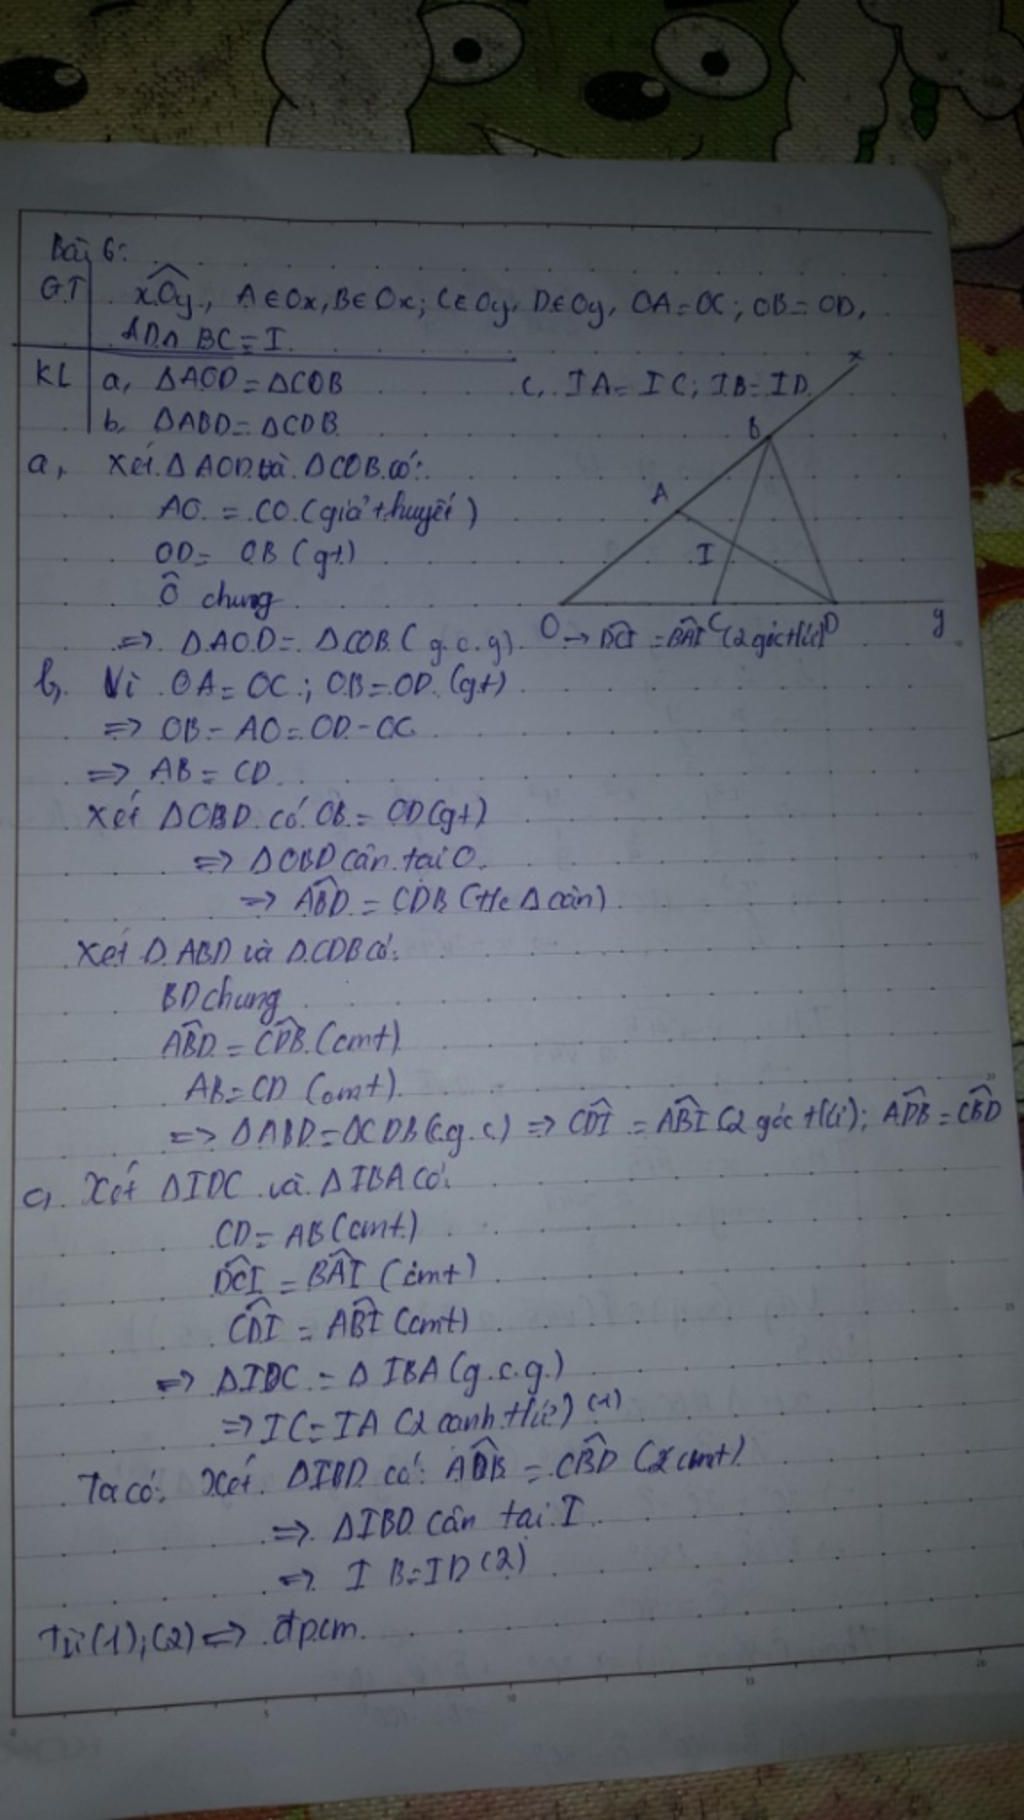 Bài 6:
GT xOy, A∈Ox, B∈Ox; C∈Oy, D∈Oy, OA=OC; OB=OD,
AD∩BC=I.
KL a, ΔAOD=ΔCOB c, IA=IC; IB=ID.
b, ΔABD=ΔCDB
x
B
A
I
O C D y
a, Xét ΔAOD và ΔCOB có:
AO = CO (giả thuyết)
OD= OB (gt)
Ô chung
=> ΔAOD= ΔCOB (g.c.g) → DCI = BAI (2 góc t/ứ)
b, Vì OA=OC; OB=OD (gt)
=> OB-AO=OD-OC
=> AB=CD
Xét ΔOBD có OB=OD(gt)
=> ΔOBD cân tại O.
=> ABD = CDB (t/c Δ cân)
Xét ΔABD và ΔCDB có:
BD chung
ABD = CDB (cmt)
AB=CD (cmt)
=> ΔABD=ΔCDB(c.g.c) => CDI = ABI (2 góc t/ứ); ADB=CBD
c, Xét ΔIDC và ΔIBA có:
CD= AB (cmt)
DCI = BAI (cmt)
CDI = ABI (cmt)
=> ΔIDC = ΔIBA (g.c.g.)
=> IC=IA (2 cạnh t/ứ) (1)
Ta có: Xét ΔIBD có: ADB = CBD (cmt)
=> ΔIBD cân tại I
=> IB=ID (2)
Từ (1);(2) => đpcm.